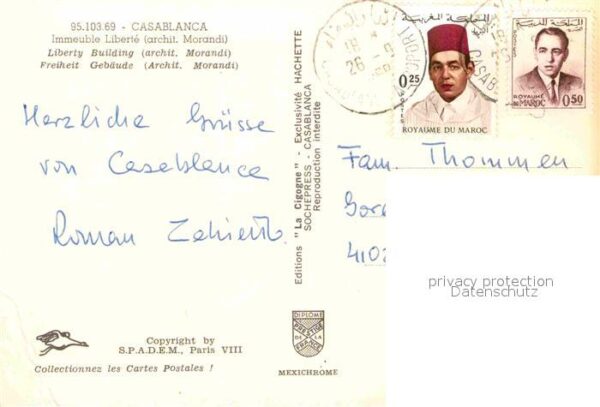 95.103.69 - CASABLANCA
Immeuble Liberté (archit. Morandi)
Liberty Building (archit. Morandi)
Freiheit Gebäude (Archit. Morandi)
Herzliche Grüsse
von Casablanca
Roman
Editions "La Cigogne" - Exclusivité HACHETTE
SOCHEPRESS - CASABLANCA
Reproduction interdite
المملكة المغربية
0.25
POSTES
ROYAUME DU MAROC
المملكة المغربية
ROYAUME
DU MAROC
0.50
18
26 - 9
CASAB
Fam. Thommen
410
privacy protection
Datenschutz
DIPLOME
PRESTIGE
DE LA
FRANCE
MEXICHROME
Copyright by
S.P.A.D.E.M., Paris VIII
Collectionnez les Cartes Postales !